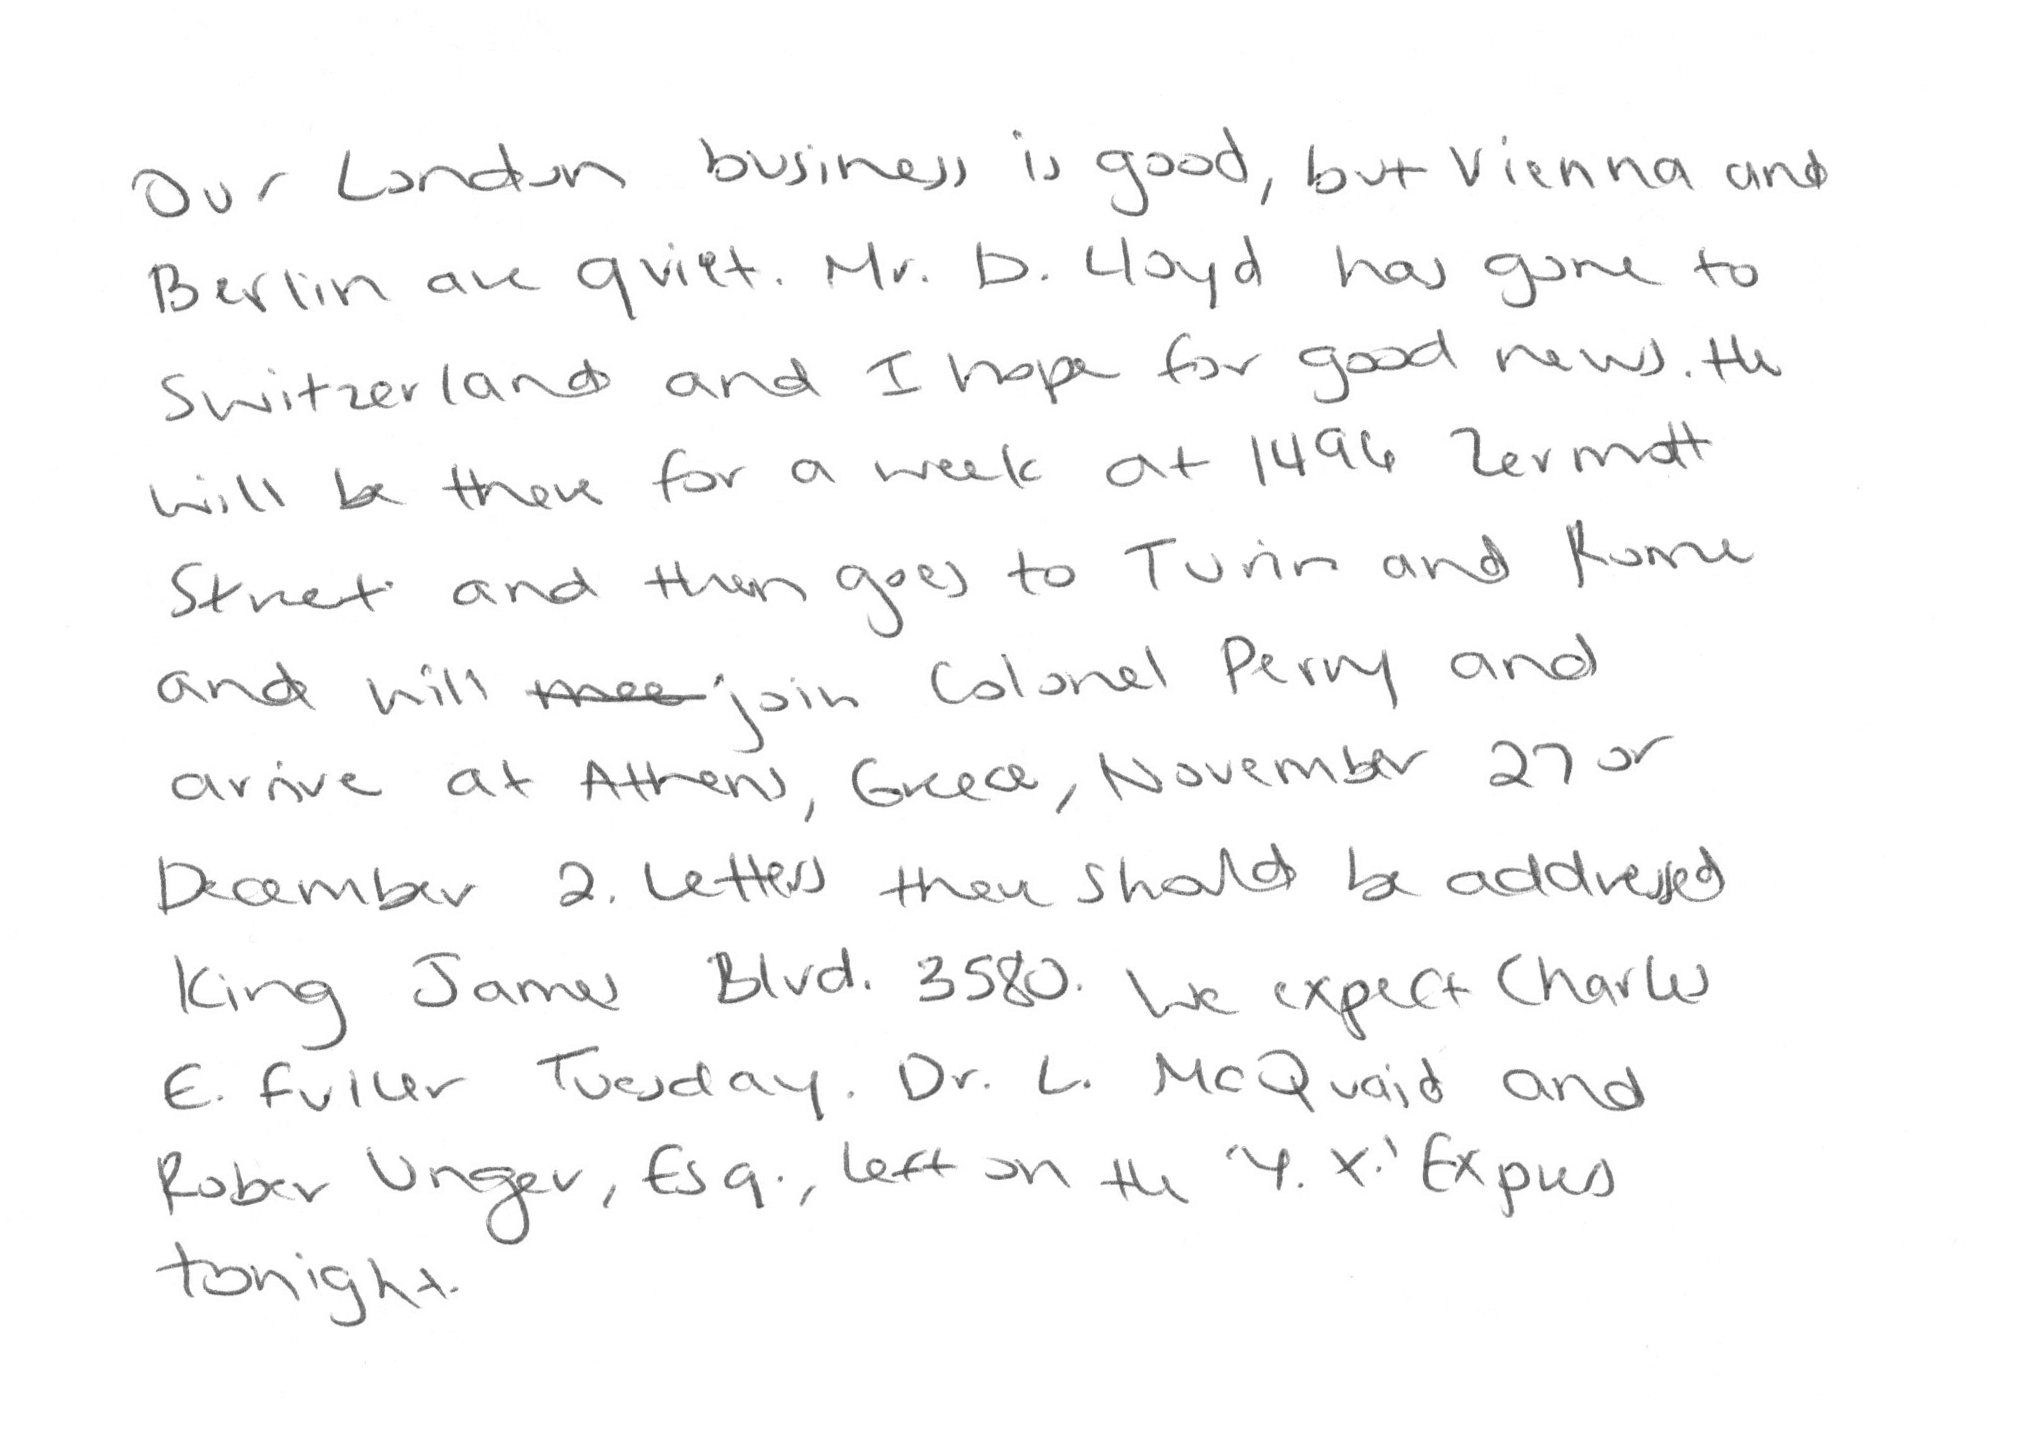 Our London business is good, but Vienna and
Berlin are quiet. Mr. D. Lloyd has gone to
Switzerland and I hope for good news. He
will be there for a week at 1496 Zermott
Street and then goes to Turin and Rome
and will join Colonel Perry and
arrive at Athens, Greece, November 27 or
December 2. Letters there should be addressed
King James Blvd. 3580. We expect Charles
E. Fuller Tuesday. Dr. L. McQuaid and
Rober Unger, Esq., left on the 'Y. X.' Express
tonight.